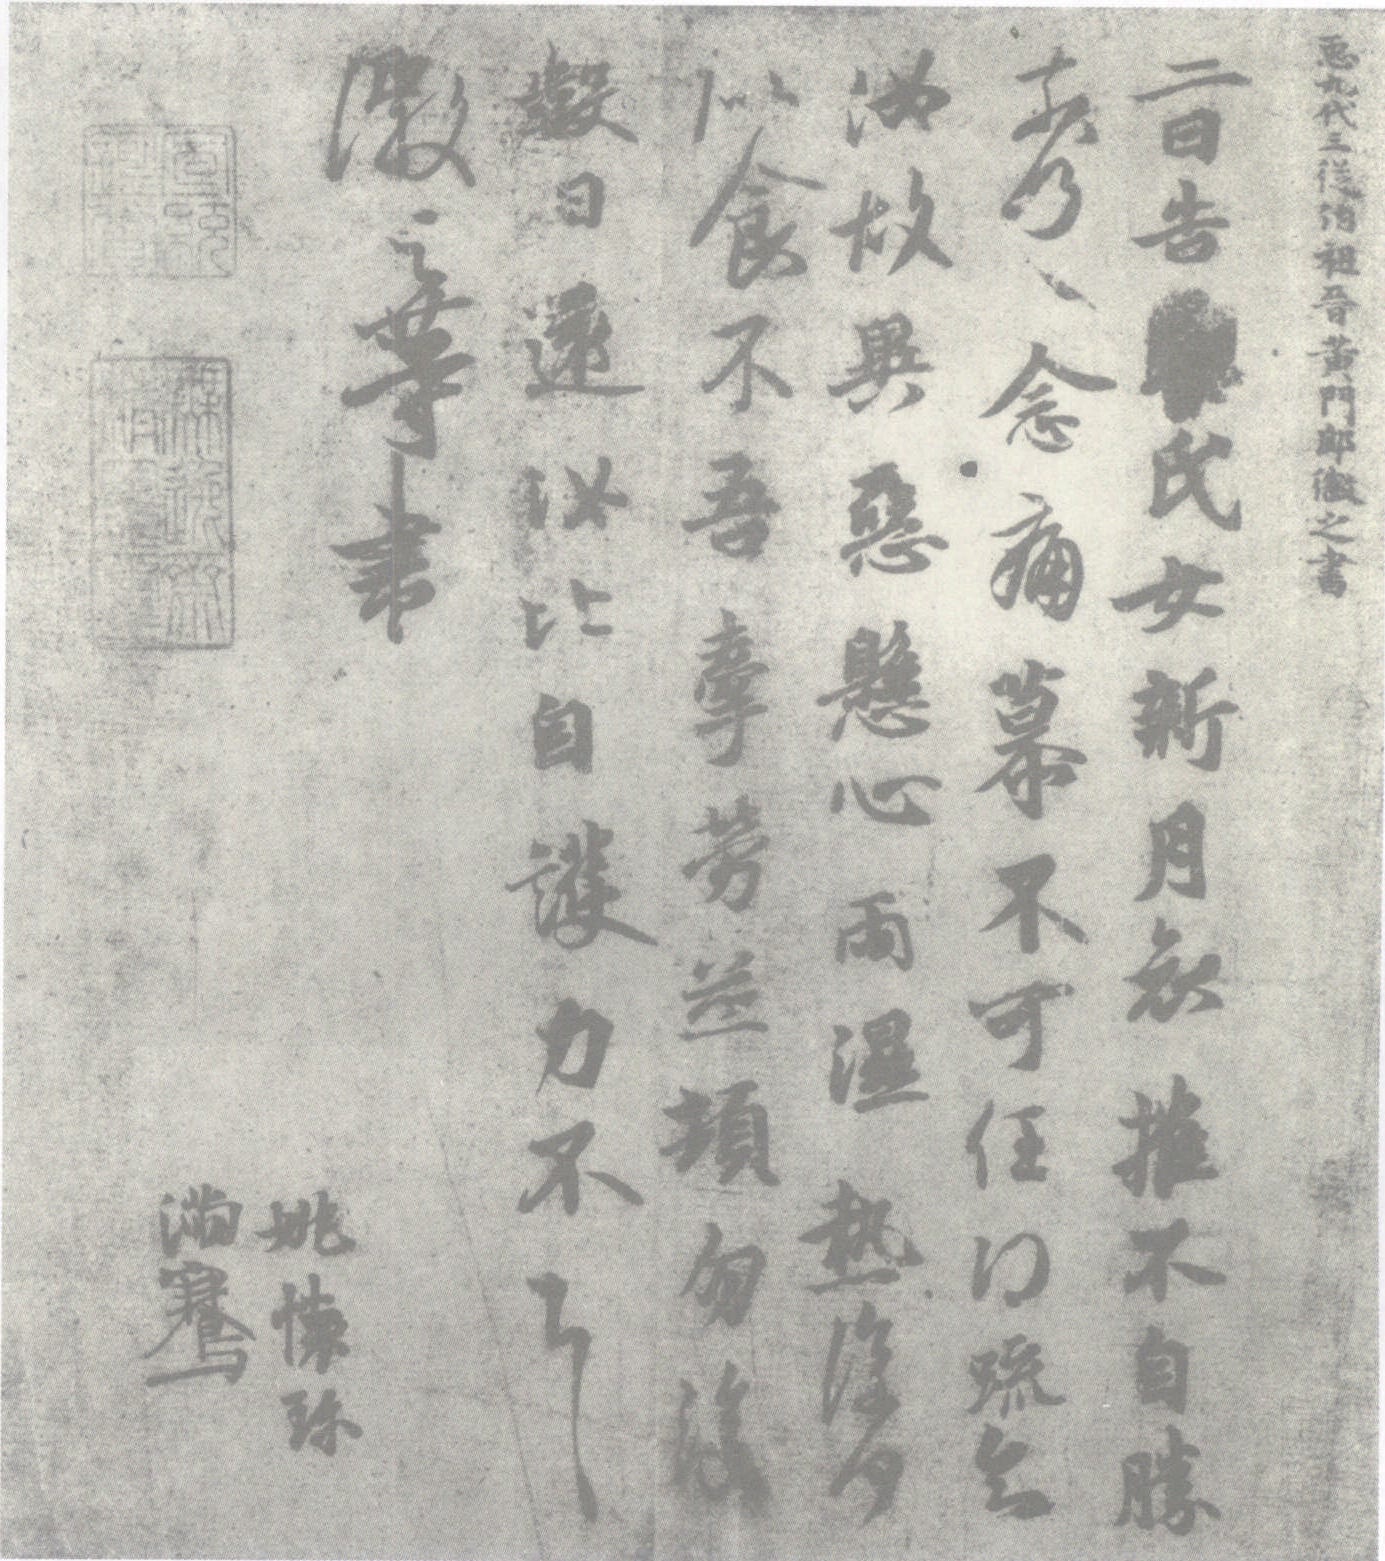 𢘑九代三從伯祖晉黃門郎徽之書
二日告氏女新月哀摧不自勝
奈何〻念痛慕不可任得疏知
汝故異惡懸心雨濕熱復何
似食不吾牽勞並頓勿復
數日還汝比自護力不具
徽之等書
姚懷珍
滿騫